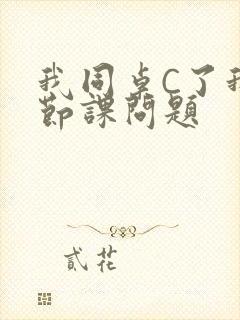 我同桌C了我
節課問題
貳花